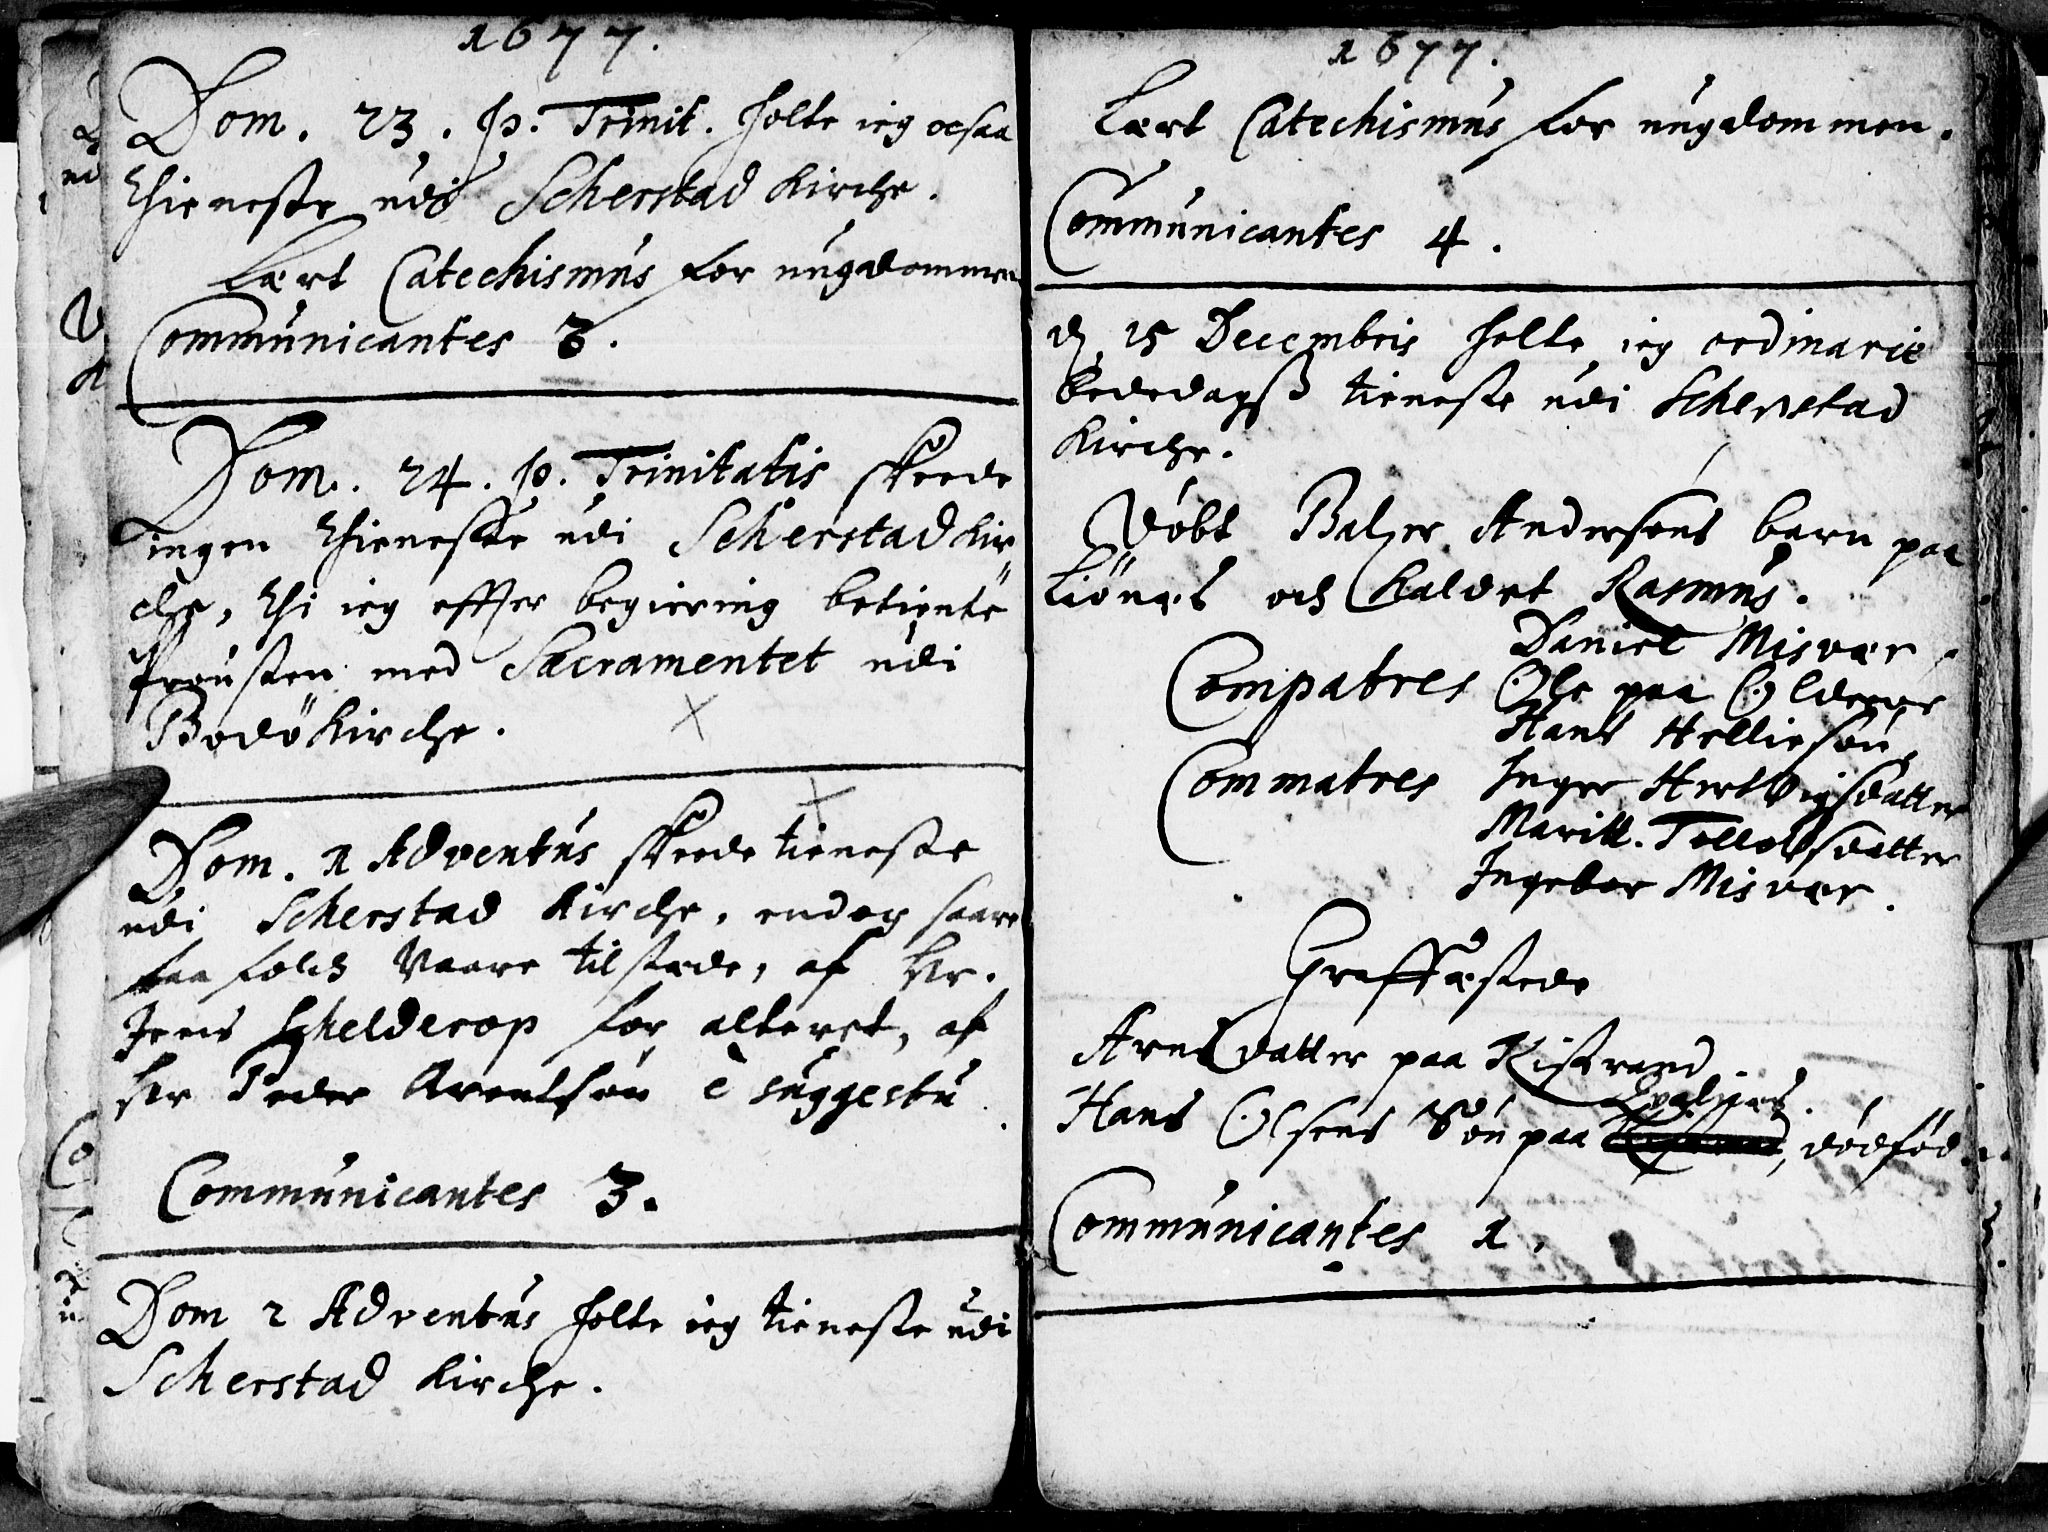 1677.
Dom. 23. p. Trinit. holte ieg ocsaa
thieneste udi Scherstad Kirche.
Lært Catechismus for ungdommen
Communicantes 3.
Dom. 24. p. Trinitatis skeede
ingen thieneste udi Scherstad Kir
che, thi ieg effter begiering betiente
Prousten med Sacramentet udi
Bodö Kirche.
Dom. 1 Adventus skeede tieneste
udi Scherstad Kirche, endog saare
faa folch vaare tilstæde, af Hr.
Jens Schelderop for alteret, af
Hr Peder Arentsøn è suggestu.
Communicantes 3.
Dom 2 Adventus holte ieg tieneste udi
Scherstad Kirche.
1677.
Lært Catechismus for ungdommen.
Communicantes 4.
d 15 Decembris holte ieg ordinarie
bededagsß tieneste udi Scherstad
Kirche.
Døbt Balzer Andersøns barn paa
Liönæs och kaldet Rasmus.
Daniel Misvær
Compatres Ole paa Olderøe
Hans Helliesøn
Commatres Inger Hertvigsdatter
Maritt. Tollovsdatter
Ingebor Misvær.
Graffæstede
Arnes datter paa Kistrand
Hans Olsens Søn paa Evalnes, dödföd
Communicantes 1.